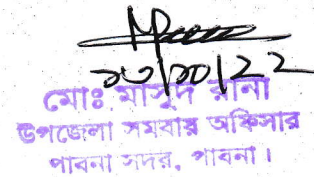 ২৩/১০/২২
মোঃ মাসুদ রানা
উপজেলা সমবায় অফিসার
পাবনা সদর, পাবনা।